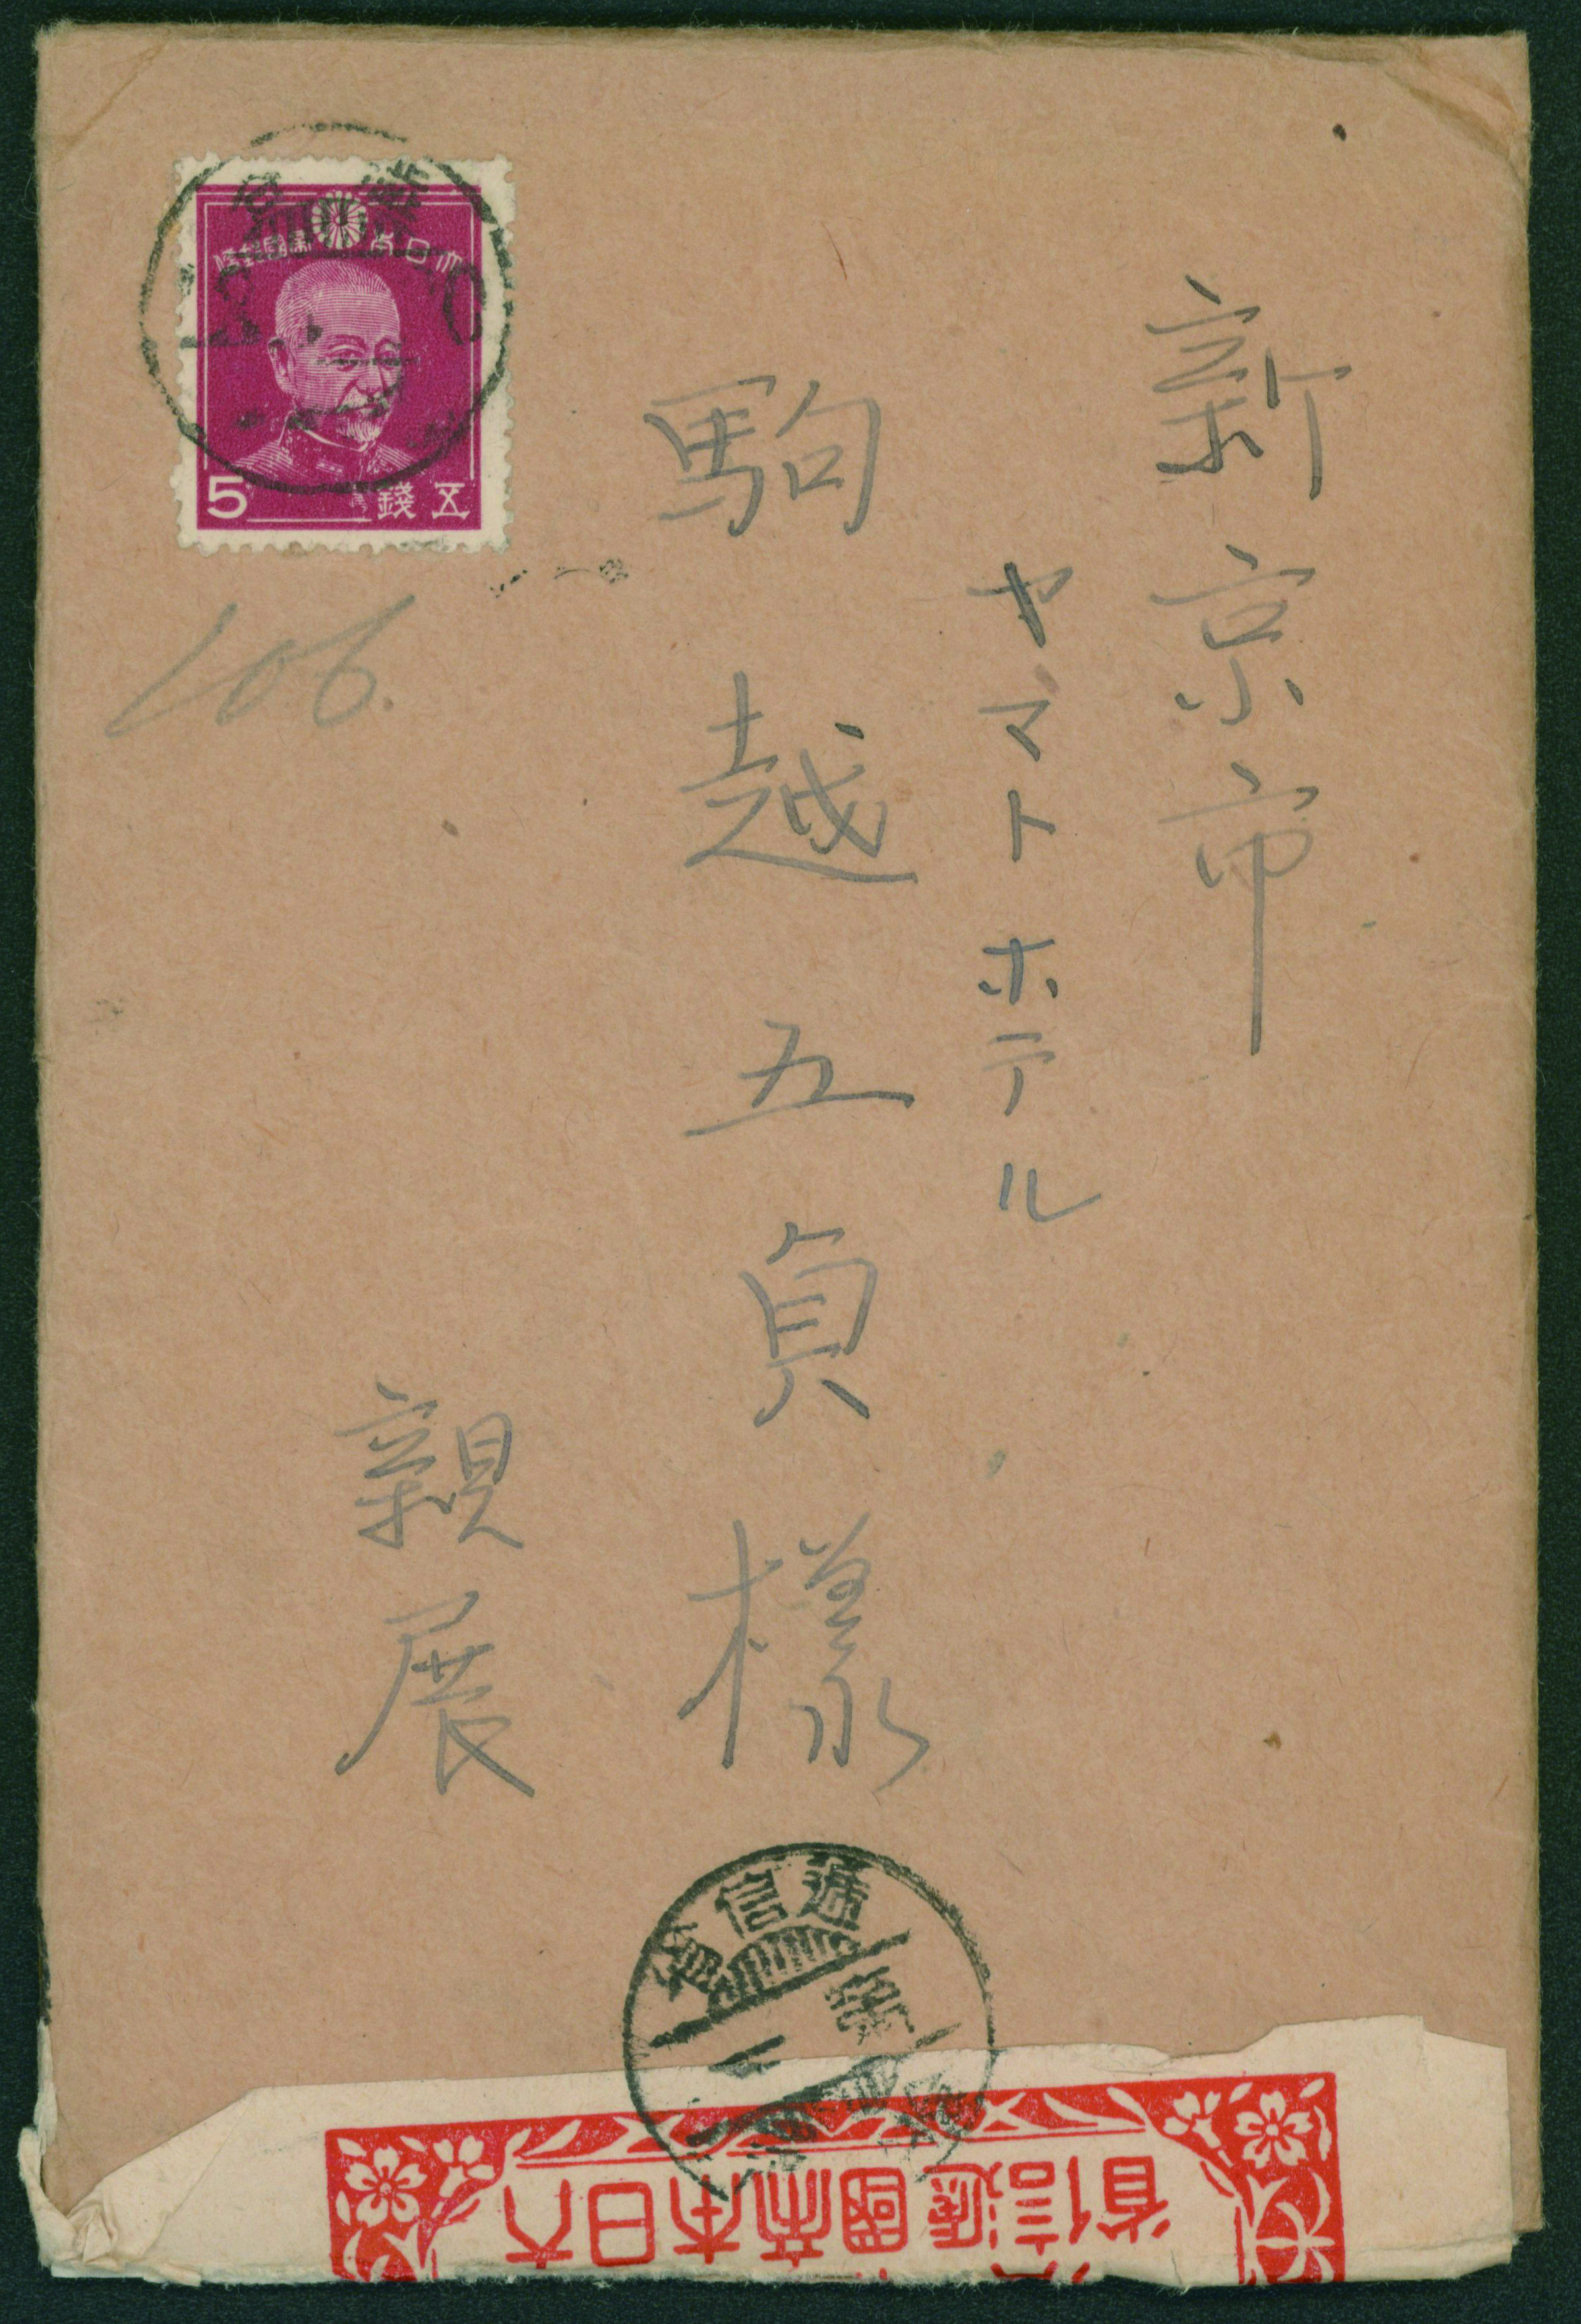 新京市
ヤマトホテル
駒越五貞様
親展
106.
大日本帝國郵便
5 五錢
遞信省
大日本帝國遞信省